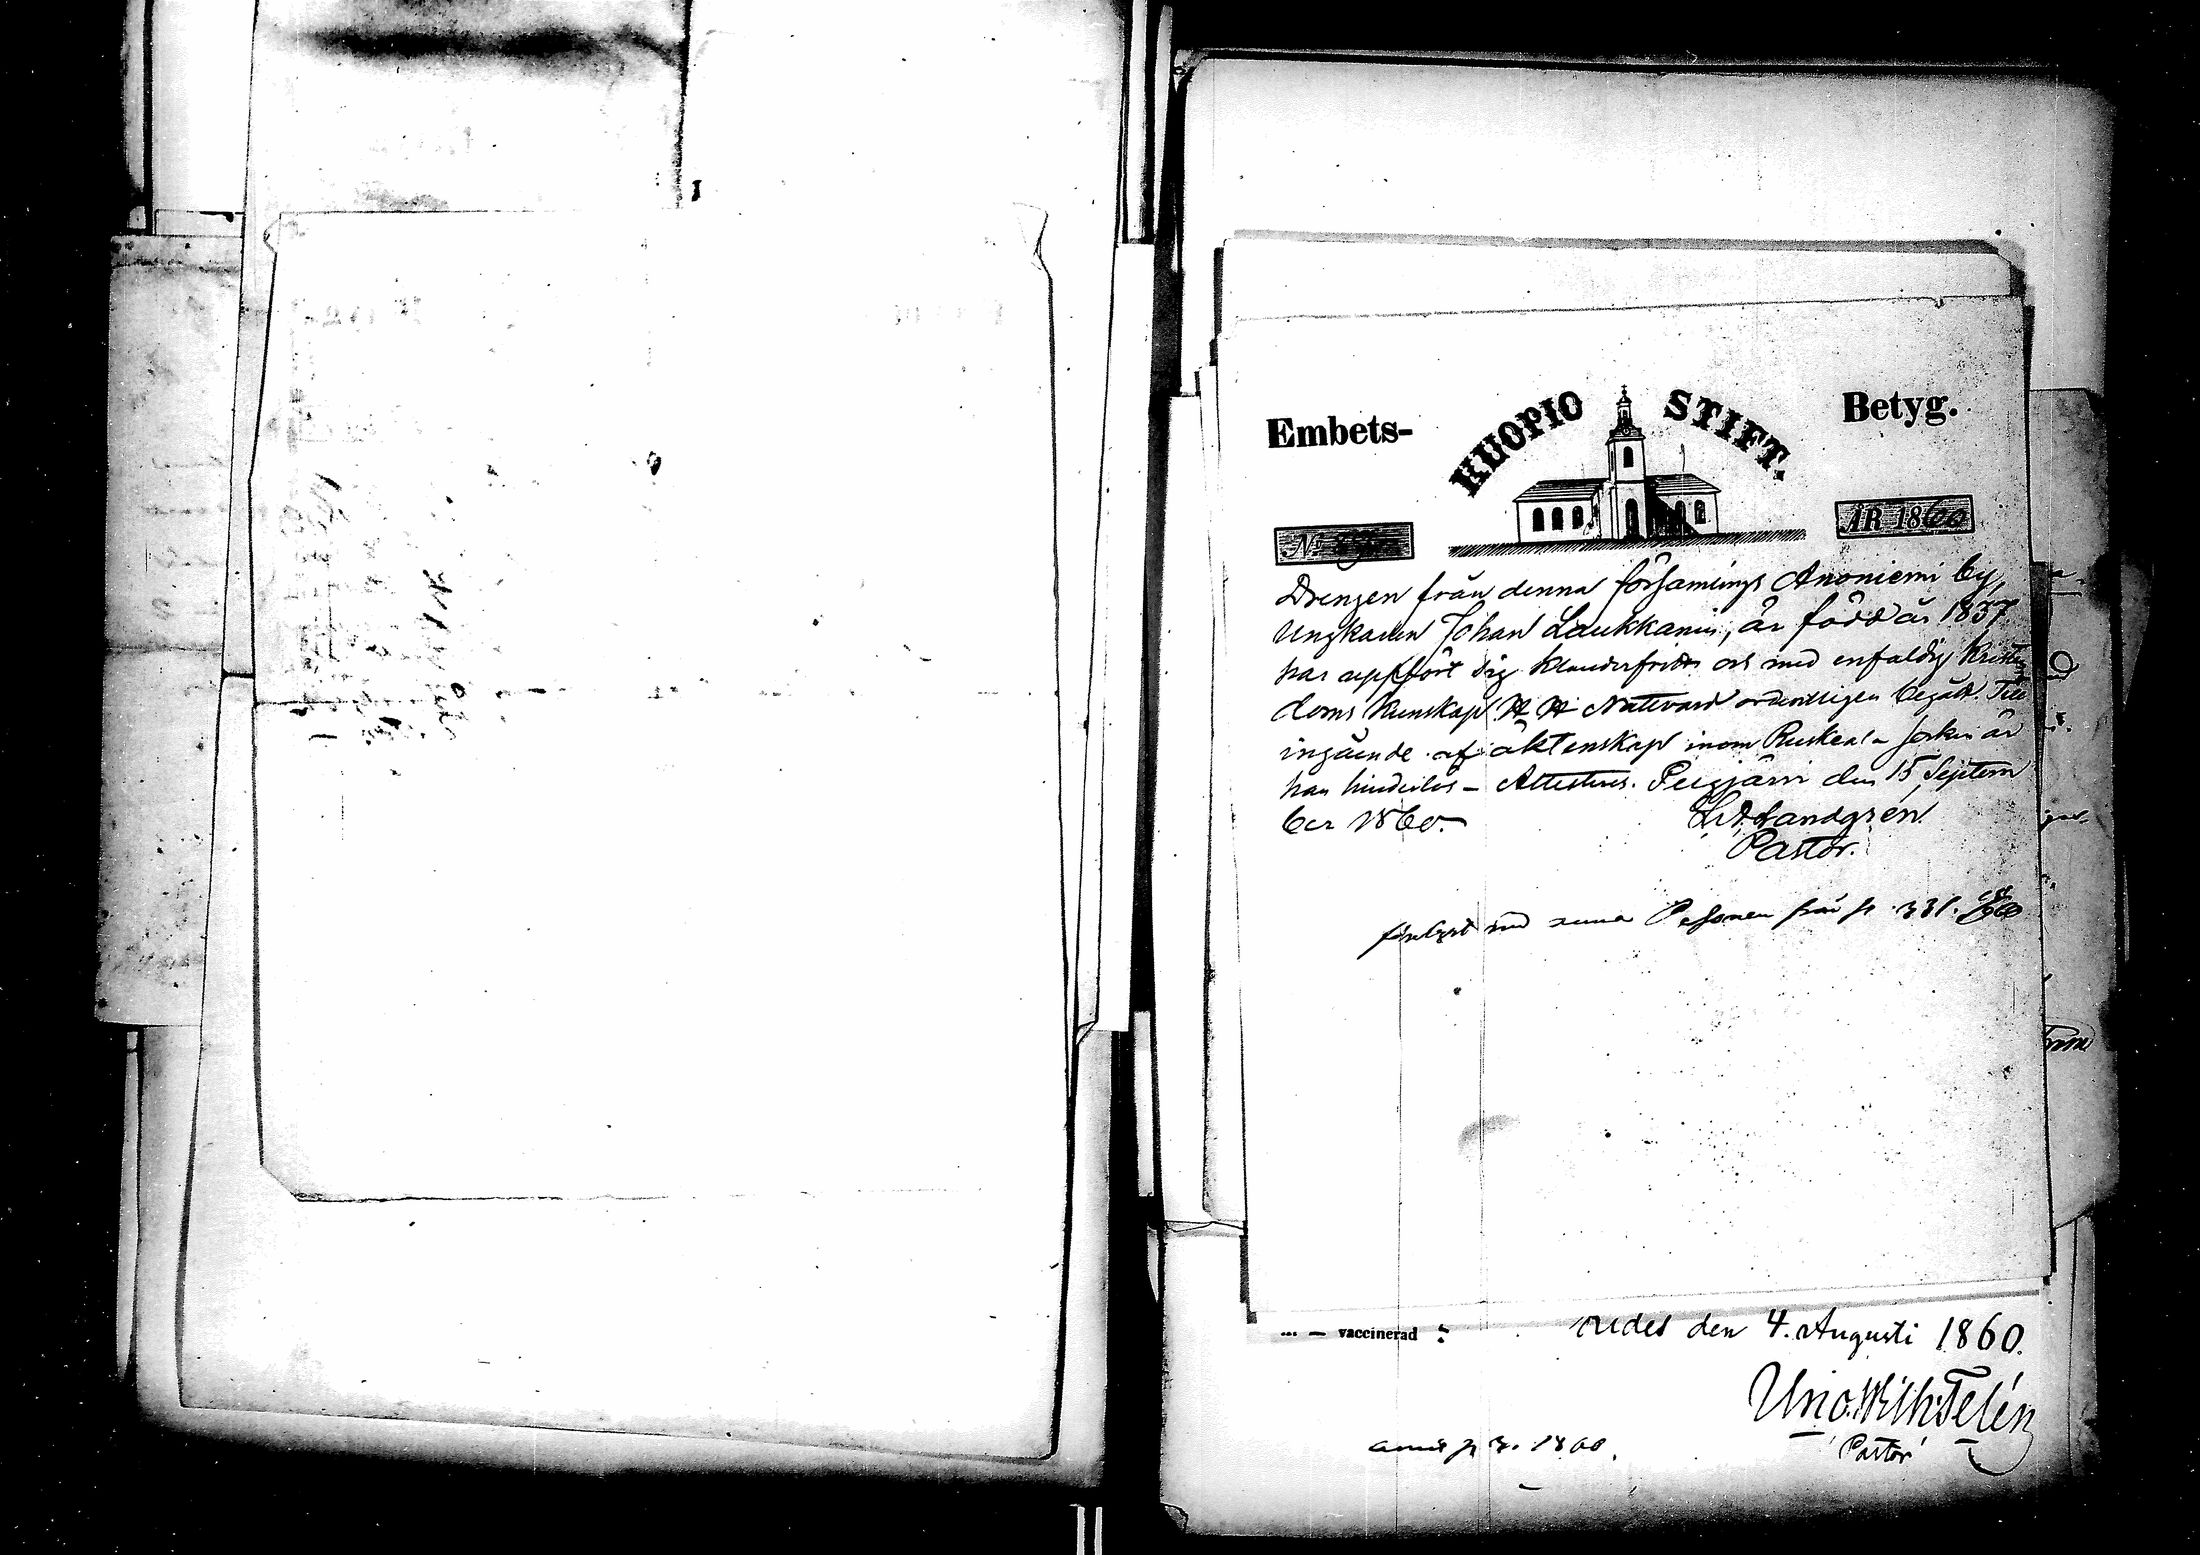 Embets-
KUOPIO STIFT.
Betyg.
No
ÅR 1860
Drengen från denna församlings Anoniemi by,
Ungkarlen Johan Laukkanen, är född år 1837
har uppfört sig klanderfritt och med enfaldig Kristen
doms kunskap H. H. Nattvard ordentligen begått. Till
ingående af äktenskap inom Ruskeala socken är
han hinderlös – Attesteras. Pelgjärvi den 15 Septem
ber 1860.
Landgrén
Pastor.
Personen från 331.
vaccinerad
den 4. Augusti 1860.
Uno Wilh. Telén
Pastor
1860.